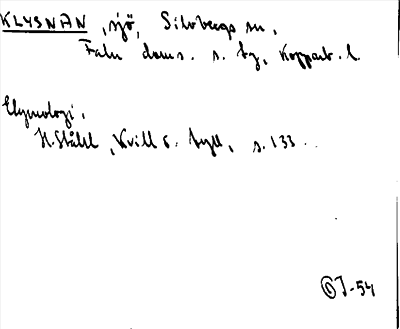 KLYSNAN, sjö, Silvbergs sn,
Falu doms. s. tg, Kopparb. l.
Etymologi.
H. Ståhl, Kvill o. tyll, s. 133.
OJ-54